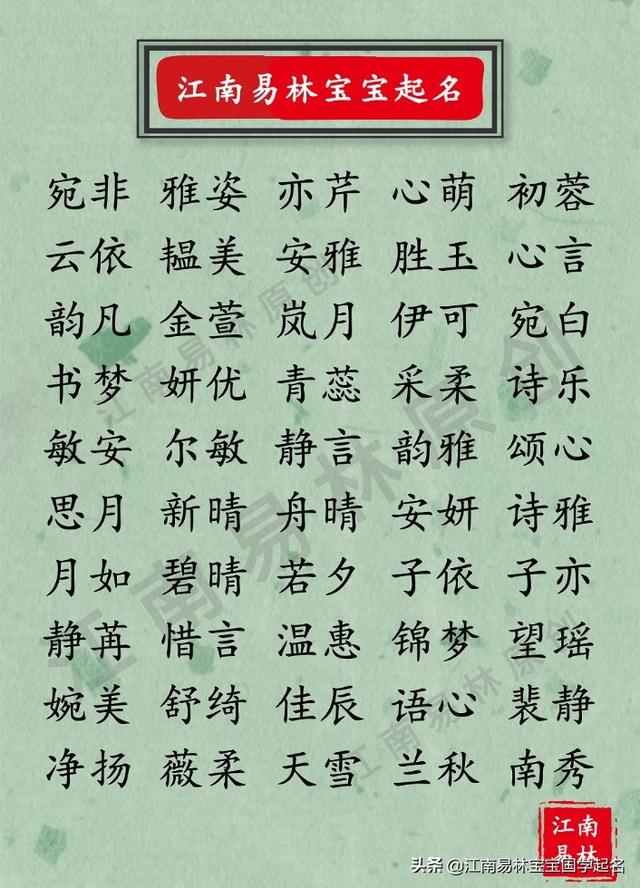 江南易林宝宝起名
宛非 雅姿 亦芹 心萌 初蓉
云依 韫美 安雅 胜玉 心言
韵凡 金萱 岚月 伊可 宛白
书梦 妍优 青蕊 采柔 诗乐
敏安 尔敏 静言 韵雅 颂心
思月 新晴 舟晴 安妍 诗雅
月如 碧晴 若夕 子依 子亦
静苒 惜言 温惠 锦梦 望瑶
婉美 舒绮 佳辰 语心 裴静
净扬 薇柔 天雪 兰秋 南秀
江南易林原创
江南易林原创
江南易林原创
江南
易林
头条 @江南易林宝宝国学起名